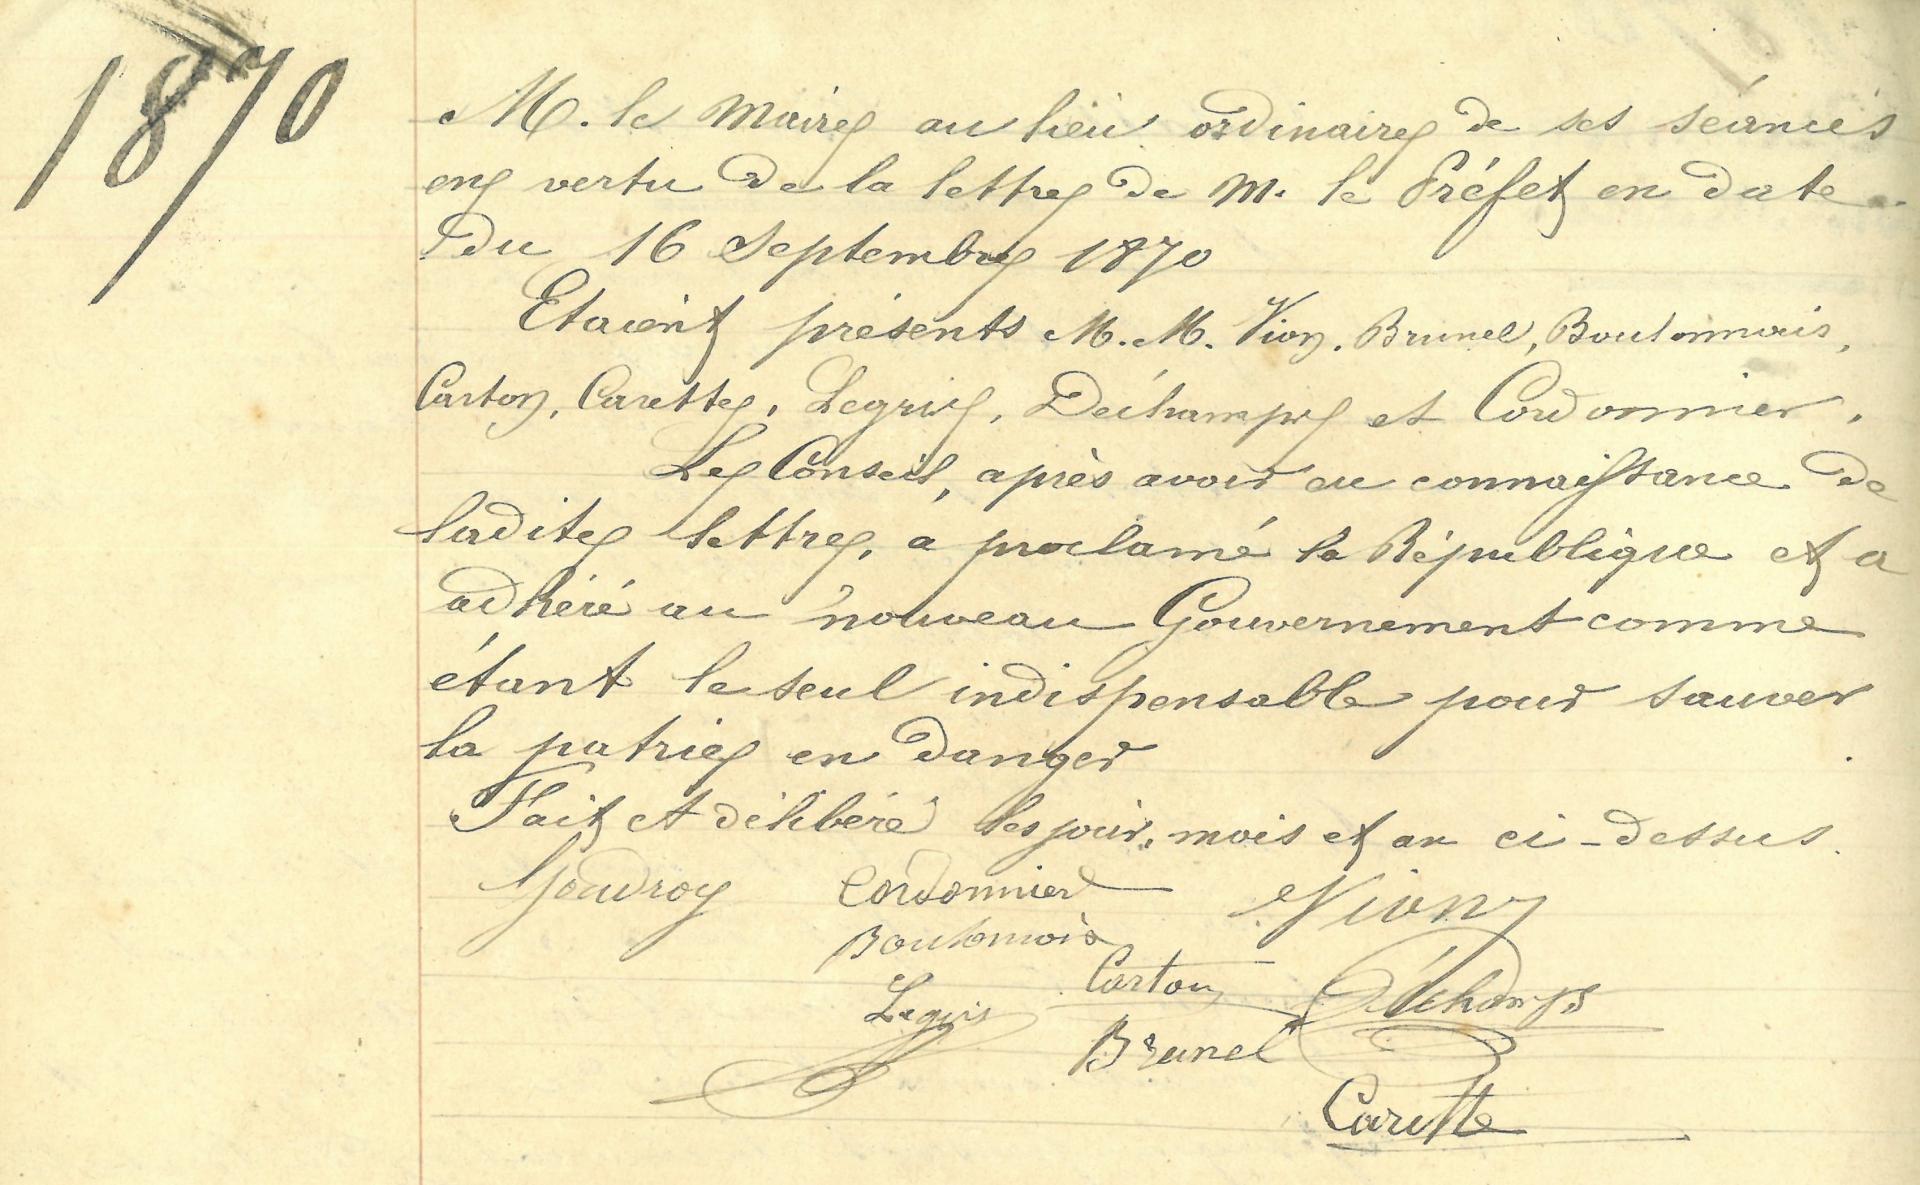 1870
M. le Maire au lieu ordinaire de ses séances
en vertu de la lettre de M. le Préfet en date
du 16 Septembre 1870
Etaient présents M. M. Vion, Brunel, Boutonnais,
Carton, Carette, Legris, Déchamps et Cordonnier.
Le Conseil, après avoir eu connaissance de
ladite lettre, a proclamé la République et a
adhéré au nouveau Gouvernement comme
étant le seul indispensable pour sauver
la patrie en danger
Fait et délibéré les jour, mois et an ci-dessus.
Cordonnier Vion
Legris Carton Déchamps
Brunel
Carette